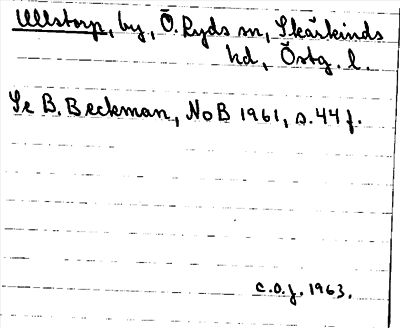 Ullstorp, by, Ö. Ryds sn, Skärkinds
hd, Östg. l.
Se B. Beckman, NoB 1961, s. 44 f.
C.O.f. 1963.